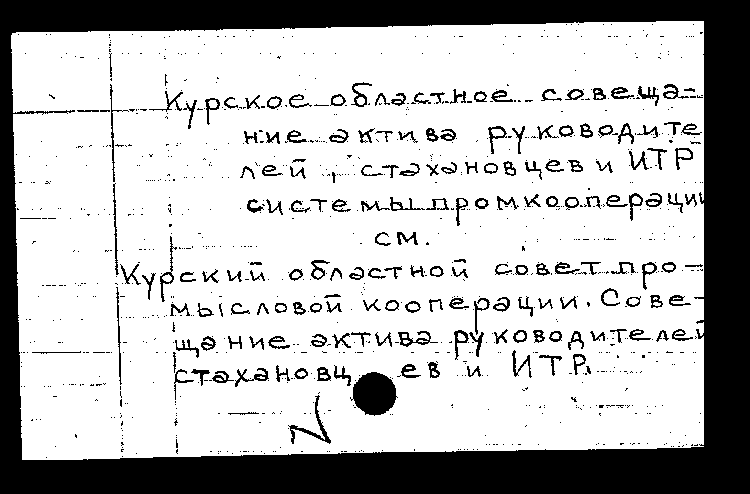 Курское областное совеща-
ние актива руководите
лей, стахановцев и ИТР
системы промкооперации
см.
Курский областной совет про-
мысловой кооперации. Сове-
щание актива руководителей
стахановцев и ИТР.